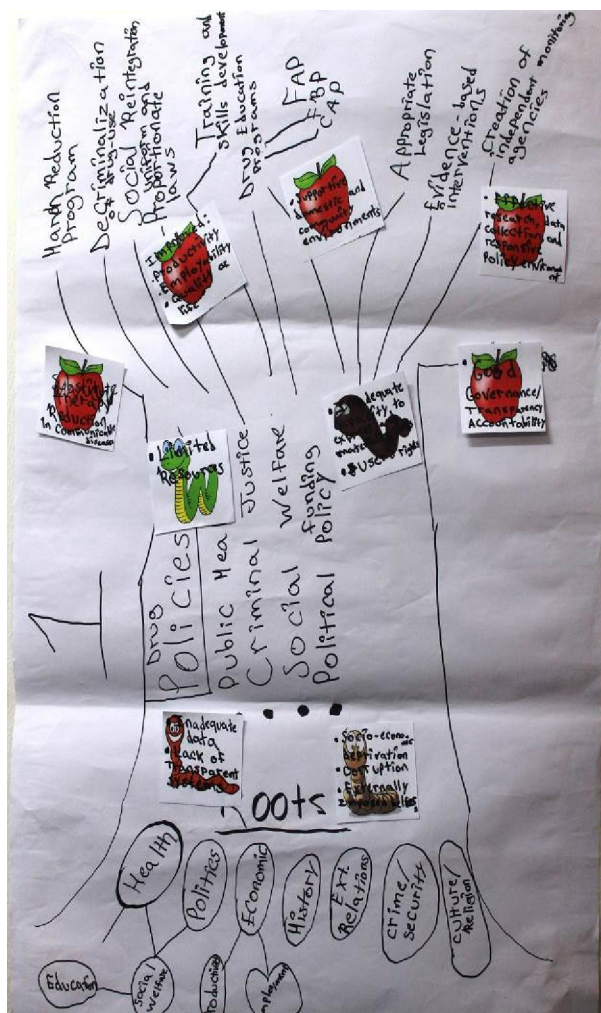 Harm Reduction
Program
Decriminalization
of drug use
Social Reintegration
Uniform and
Proportionate
laws
Training and
skills development
Drug Education
Programs
FAP
FBP
CAP
Appropriate
Legislation
Evidence-based
interventions
Creation of
independent monitoring
agencies
Substitute
Therapy
Reduction
In Communicable
diseases
Improved:
• Productivity
• Employability
• Quality of
life
• Supportive
domestic and
community
environments
• Effective
research, data
collection and
responsive
Policy environment
• Good
Governance/
Transparency
Accountability
• Limited
Resources
to
• rights
1
Drug
Policies
Public Hea
Criminal Justice
Social Welfare
funding
Political Policy
• Inadequate
data
• Lack of
Transparent
systems
• Socio-economic
deprivation
• Corruption
• Externally
Imposed
Roots
Health
Politics
Economic
History
Ext.
Relations
Crime/
Security
Culture/
Religion
Education
Social
Welfare